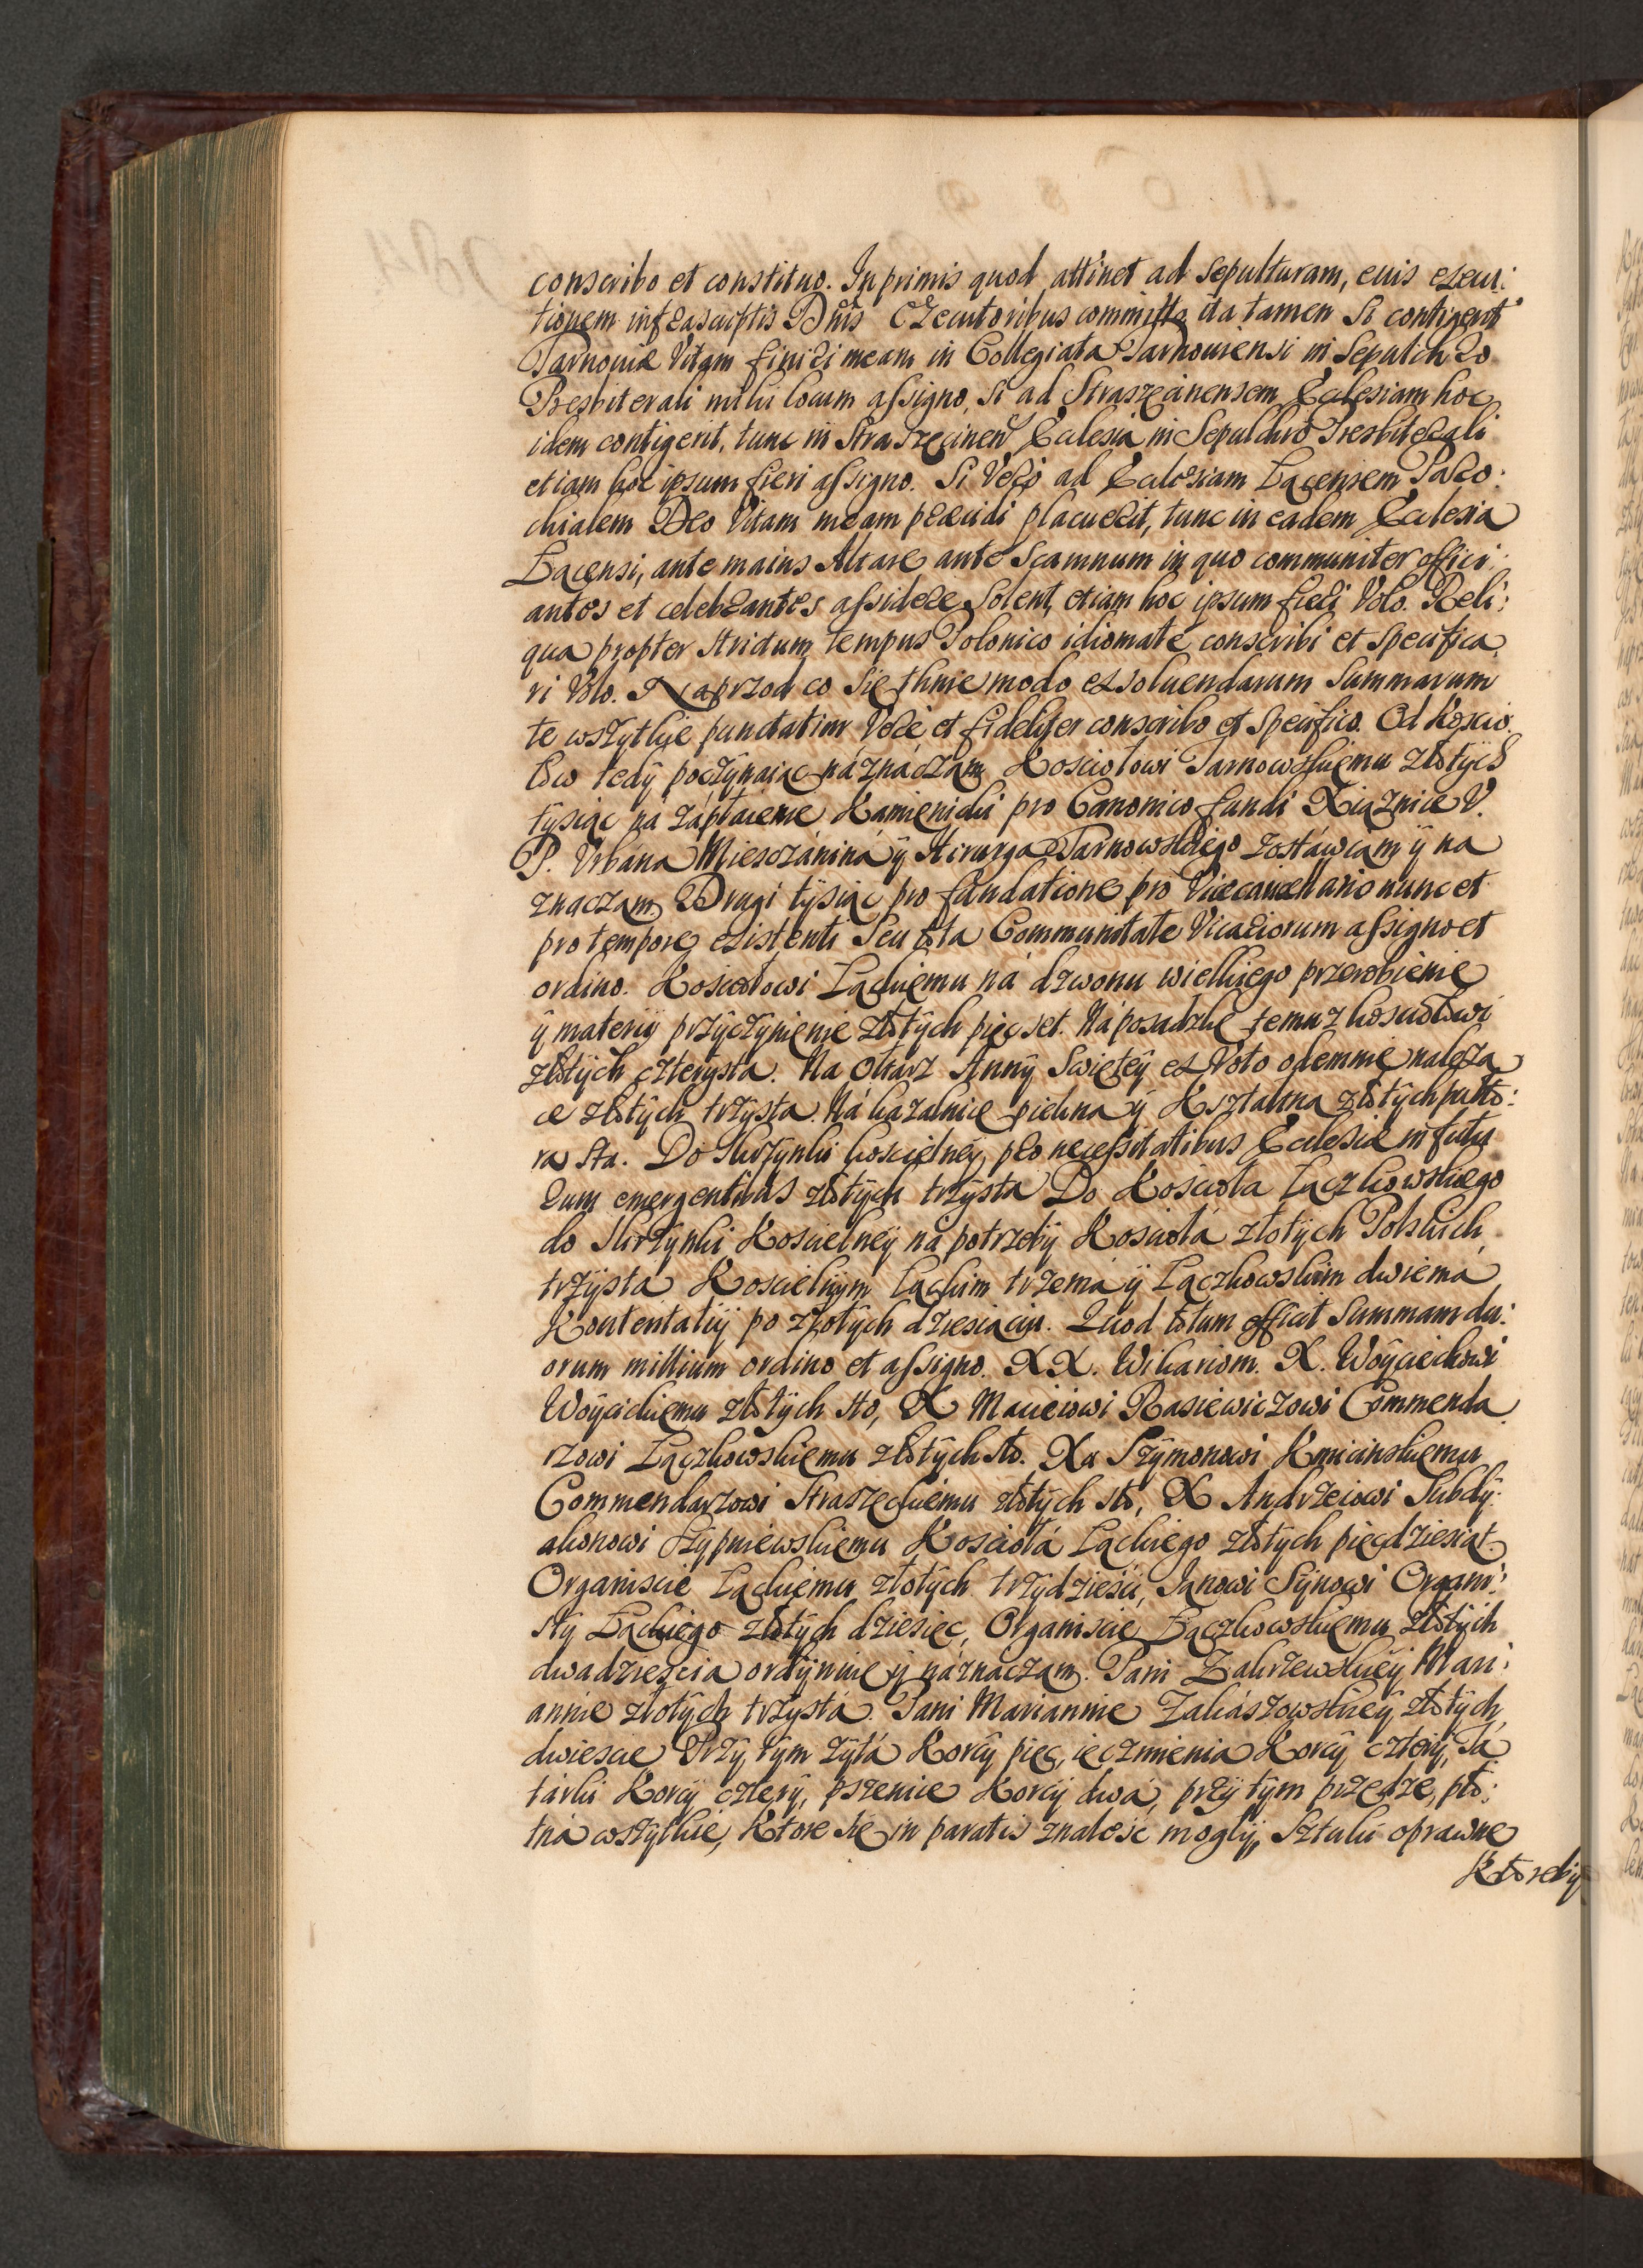 conscribo et constituo. Inprimis quod attinet ad Sepulturam, euis execu:
tionem infrascriptis Dnis Executoribus committo ita tamen Si contigerit
Tarnoviæ Vitam finiri meam in Collegiata Tarnoviensi in Sepulchro
Presbiterali mihi locum assigno, Si ad Straszęcinensem Ecclesiam hoc
idem contigerit, tunc in Straszęcinen Ecclesia in Sepulchro Presbiterali
etiam hoc ipsum fieri assigno. Si Vero ad Ecclesiam Łącensem Paro:
chialem Deo Vitam meam præcidi placuerit, tunc in eadem Ecclesia
Łącensi, ante maius Altare ante Scamnum in quo communiter offici:
antes et celebrantes assidere Solent, etiam hoc ipsum fieri Volo. Reli:
qua propter strictum tempus Polonico idiomate conscribi et Specifica
ri Volo. Naprzod co się tknie modo exsoluendarum Summarum
te wszytkie punctatim Vere et fideliter conscribo et Specifico. Od koscio
łow tedÿ poczÿnaiąc náznáczám Kosciołowi Tarnowskiemu złotÿch
tÿsiąc ná zápłacenie Kamieniczki pro Canonico fundi Xiąznice V.
P. Vrbána Miesczániná ÿ Hirurga Tarnowskiego zostáwiam ÿ na
znaczam. Drugi tÿsiąc pro fundatione pro Vicecancellario nunc et
pro tempore existenti Seu tota Communitate Vicariorum assigno et
ordino. Kosciołowi Łąckiemu ná dzwonu wielkiego przerobienie
ÿ materÿi przÿczÿnienie złotÿch pięcset. Ná posadzkę temuz kosciołowi
złotÿch czterÿsta. Na Ołtarz Annÿ Swiętéÿ ex Voto odemnie naleza
ce złotÿch trzÿsta. Ná kazalnicę piekna ÿ Kształtna złotÿch pułto:
ra sta. Do Skrzÿnki koscielnéÿ, pro necessitatibus Ecclesiæ in futu
rum emergentibus złotÿch trzÿsta Do Koscioła Łączkowskiego
do Skrzÿnki Koscielnéÿ ná potrzebÿ Koscioła złotÿch Polskich
trzÿsta Koscielnÿm Łąckim trzemá ÿ Łączkowskim dwiemá
Kontentatiÿ po złotÿch dziesiąciu. Quod totum efficit Summam du:
orum millium ordino et assigno. XX. Wikariom. X. Woÿciechowi
Woÿcickiemu złotÿch sto, X Macieiowi Rasiewiczowi Commenda
rzowi Łączkowskiemu złotÿch sto. Xu Szÿmonowi Kmicinskiemu
Commendarzowi Straszęckiemu złotÿch sto, X Andrzeiowi Subdÿ:
akonowi Szÿpniewskiemu Koscioła Łąckiego złotÿch pięcdziesiąt
Organiscie Łąckiemu złotÿch trzÿdziesci, Janowi Sÿnowi Organi:
stÿ Łąckiego złotÿch dziesięc, Organiscie Łączkowskiemu złotÿch
dwadziescia ordÿnuie ÿ náznaczam. Pani Zakrzewskiéÿ Mari:
annie złotÿch trzÿstá. Pani Mariannie Zakászowskiéÿ złotÿch
dwiescie Przÿ tÿm zÿtá Korcÿ pięc, ięczmienia Korcÿ czterÿ, Tá
tárki Korcÿ czterÿ, pszenice Korcÿ dwá, przÿ tÿm przędze, płó:
tná wszÿtkie, ktore się in paratis znalesc moglÿ, Sztuki oprawne
Ktorebÿ